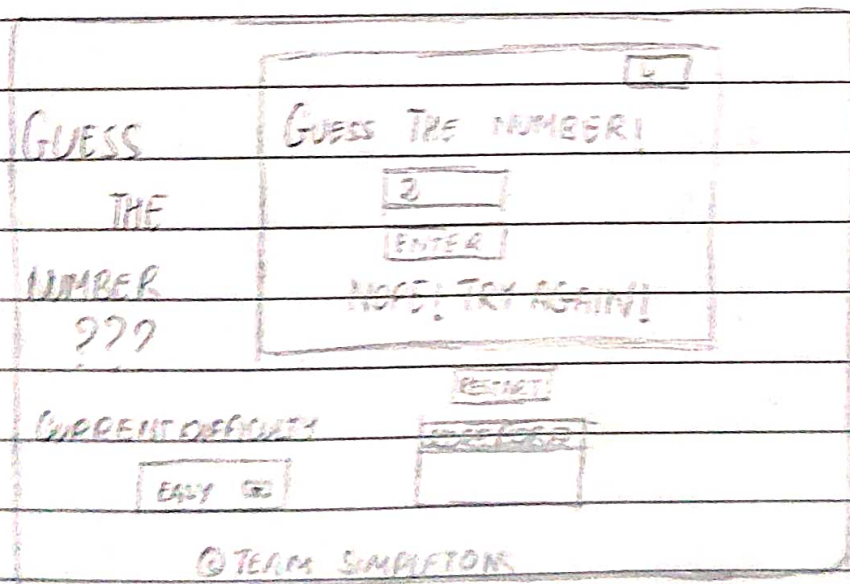 GUESS
THE
NUMBER
???
GUESS THE NUMBER!
2
ENTER
NOPE! TRY AGAIN!
RESTART
CURRENT DIFFICULTY
EASY
© TEAM SIMPLETON